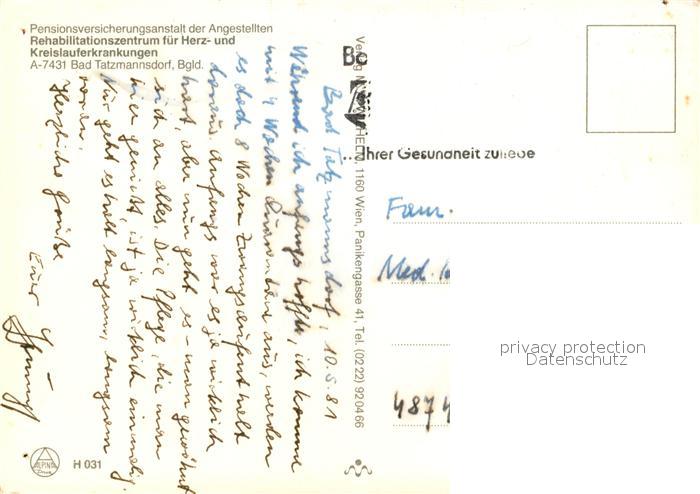 Pensionsversicherungsanstalt der Angestellten
Rehabilitationszentrum für Herz- und
Kreislauferkrankungen
A-7431 Bad Tatzmannsdorf, Bgld.
Bad Tatzmannsdorf, 10.5.81
Während ich anfangs hoffte, ich komme
mit 4 Wochen aus, werden
es doch 8 Wochen Zwangsaufenthalt
daraus. Anfangs war es ja wirklich
hart, aber nun geht es - man gewöhnt
sich an alles. Die Pflege, die man
hier genießt, ist ja wirklich einmalig.
Nur geht es halt langsam, langsam
Herzliche Grüße
Euer
Verlag 1160 Wien, Panikengasse 41, Tel. (0222) 920466
Ba
...Ihrer Gesundheit zuliebe
Fam.
Med.
487
privacy protection
Datenschutz
ALPINA
H 031